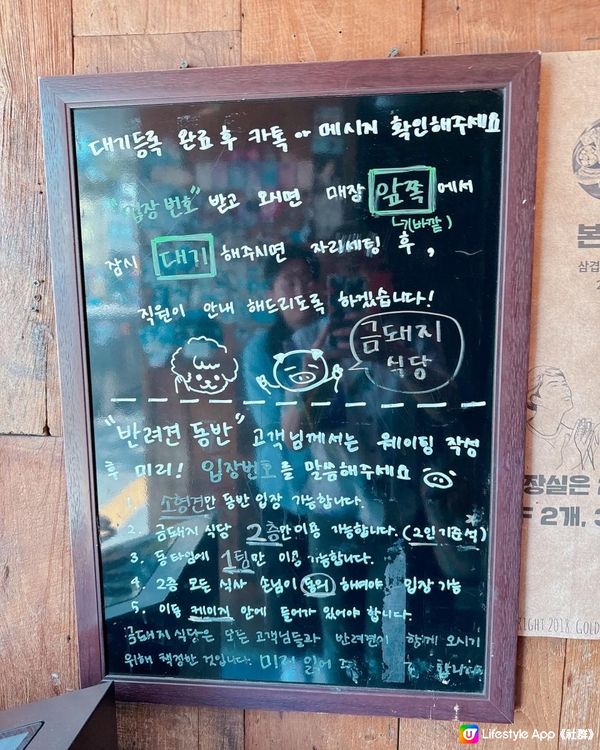 대기등록 완료 후 카톡 메시지 확인해주세요
"입장번호" 받고 오시면 매장 앞쪽에서
ㄴ(바깥)
잠시 대기 해주시면 자리세팅 후,
직원이 안내 해드리도록 하겠습니다!
금돼지
식당
"반려견 동반" 고객님께서는 웨이팅 작성
후 미리! 입장번호를 말씀해주세요
1. 소형견만 동반 입장 가능합니다.
2. 금돼지 식당 2층만 이용 가능합니다. (2인 기준석)
3. 동 타임에 1팀만 이용 가능합니다.
4. 2층 모든 식사 손님이 동의 해주셔야 입장 가능
5. 이동 케이지 안에 들어가 있어야 합니다.
금돼지 식당은 모든 고객님들과 반려견이 함께 오시기
위해 책정한 것입니다. 미리 읽어 주
본
삼겹
장실은
2개, 3
RIGHT 2018. GOLD
Lifestyle App《社群》